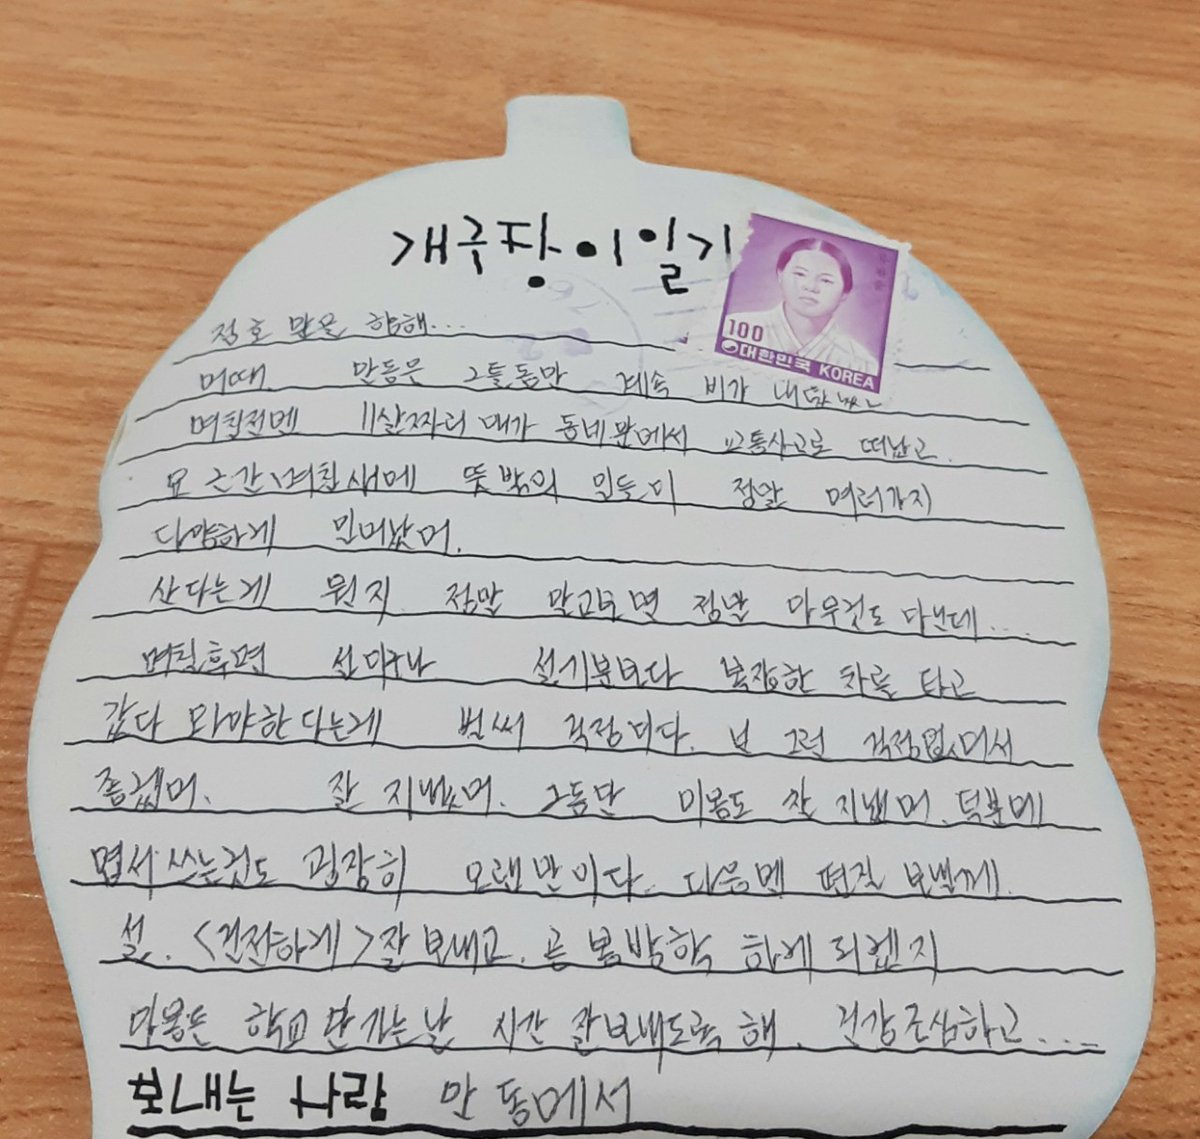 개구장이 일기
100
대한민국 KOREA
정호 맘은 향해...
어때. 안동은 그틀동안 계속 비가
며칠전엔 11살짜리 애가 동네 앞에서 교통사고로 떠났고.
요 근간 며칠새에 뜻밖의 일들이 정말 여러가지
다양하게 일어났어.
산다는게 뭔지 정말 알고보면 정말 아무것도 아닌데...
며칠후면 설이구나 설기분보다 복잡한 차를 타고
갔다 와야한다는게 벌써 걱정이다. 넌 그런 걱정없어서
좋겠어. 잘 지냈어. 그동안 이몸도 잘 지냈어. 덕분에
엽서 쓰는것도 굉장히 오랜만이다. 다음엔 편질 보낼께.
설. <건전하게> 잘 보내고. 곧 봄방학 하게 되겠지
아뭏든 학교 안가는 날 시간 잘보내도록 해. 건강조심하고....
보내는 사람 안동에서